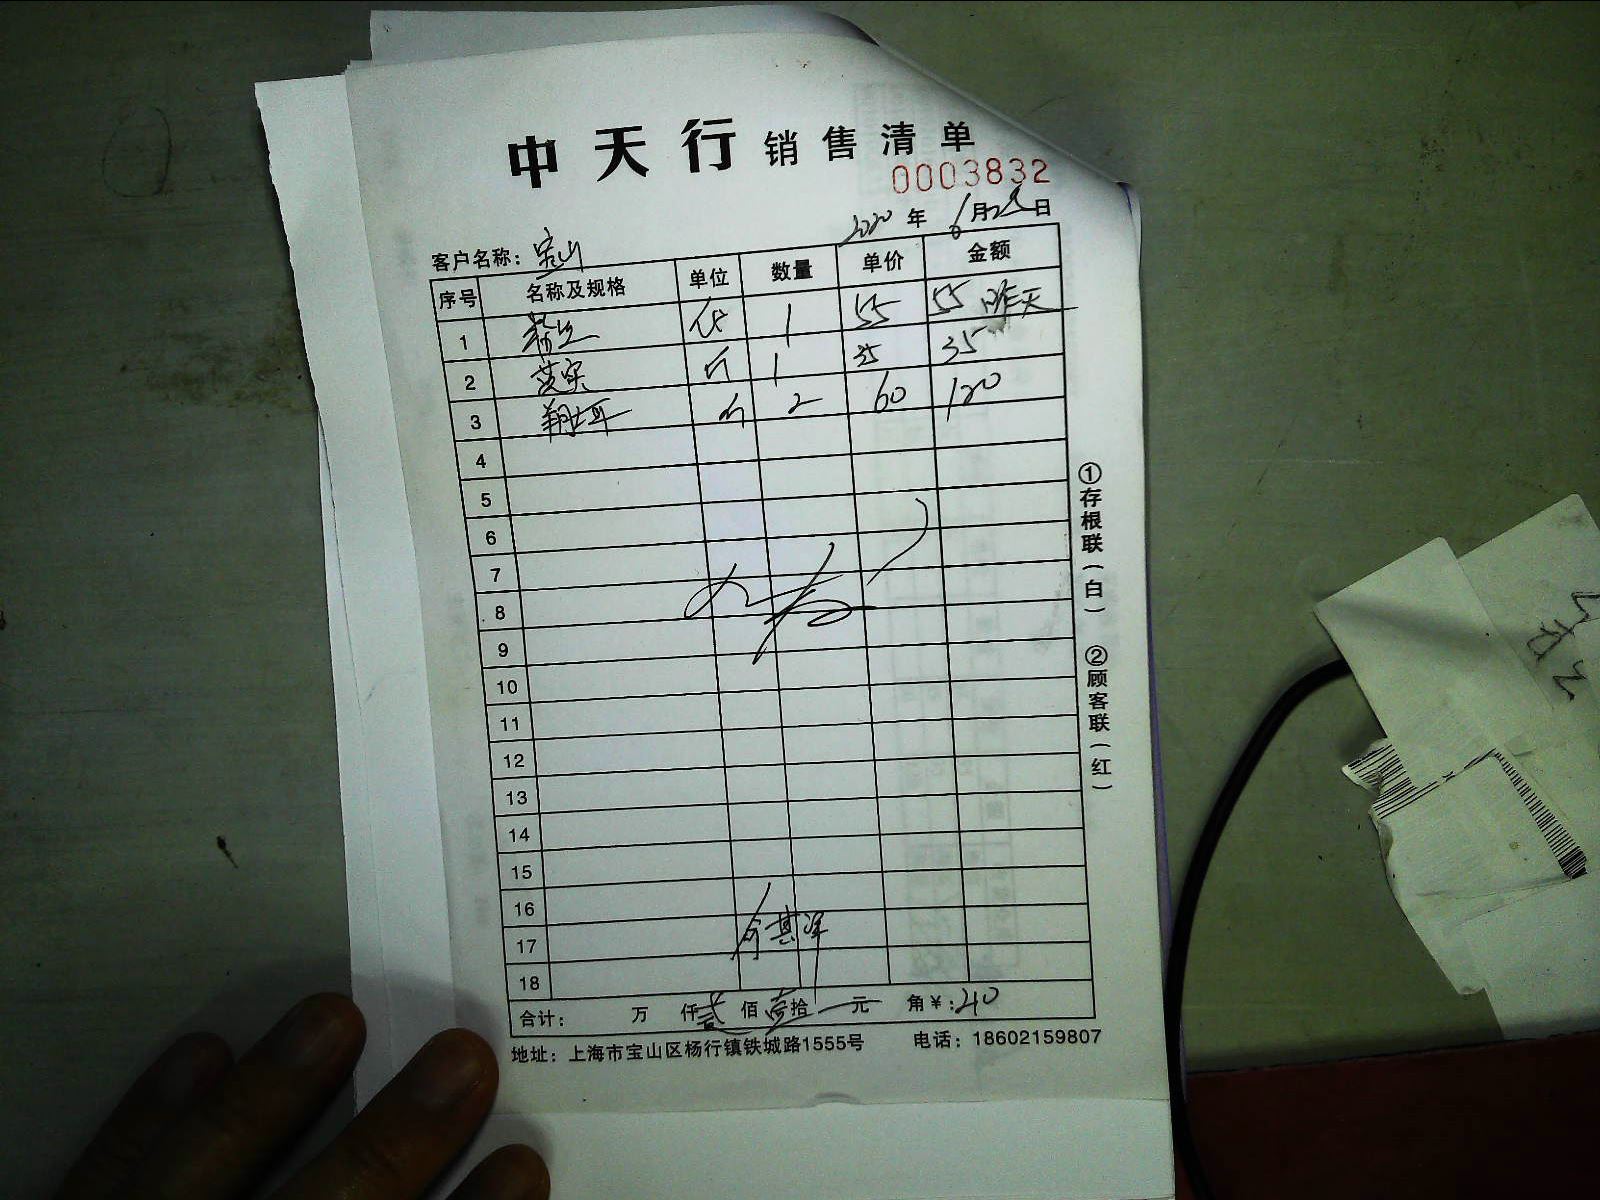 中天行销售清单
0003832
2020年6月28日
客户名称：宝山
序号 名称及规格 单位 数量 单价 金额
1 1 55 55 昨天
2 芡实 斤 1 35 35
3 斤 2 60 120
4
5
6
7
8
9
10
11
12
13
14
15
16
17
18
合计： 万 仟贰佰壹拾 元 角￥：210
地址：上海市宝山区杨行镇铁城路1555号 电话：18602159807
①存根联（白） ②顾客联（红）